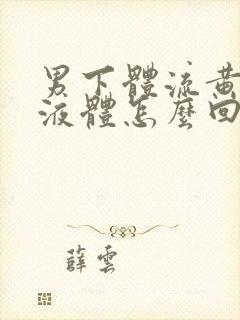 男下體流黃
液體怎麼回
薛雲